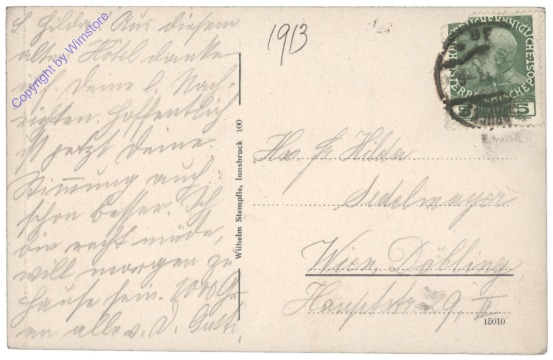 L. Hilda! Aus diesem
alten Hôtel danke
ich Deine l. Nach-
richten. Hoffentlich
ist jetzt Deine
Stimmung auch
schon besser. Ich
bin recht müde,
will morgen zu
Hause sein. 1000 Gr.
an alle v. D.
Copyright by Wimstore
1913
Wilhelm Stempfle, Innsbruck 100
Hilda
Sedelmayer
Wien, Döbling
Hauptstr. 29, II
15010
5